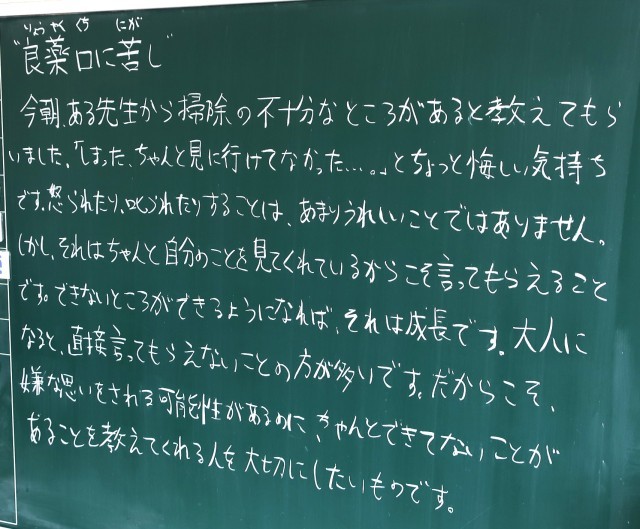 りょうやく くち にが
"良薬口に苦し"
今朝、ある先生から掃除の不十分なところがあると教えてもら
いました。「しまった、ちゃんと見に行けてなかった…。」とちょっと悔しい気持ち
です。怒られたり、叱られたりすることは、あまりうれしいことではありません。
しかし、それはちゃんと自分のことを見てくれているからこそ言ってもらえること
です。できないところができるようになれば、それは成長です。大人に
なると、直接言ってもらえないことの方が多いです。だからこそ、
嫌な思いをされる可能性があるのに、ちゃんとできてないことが
あることを教えてくれる人を大切にしたいものです。